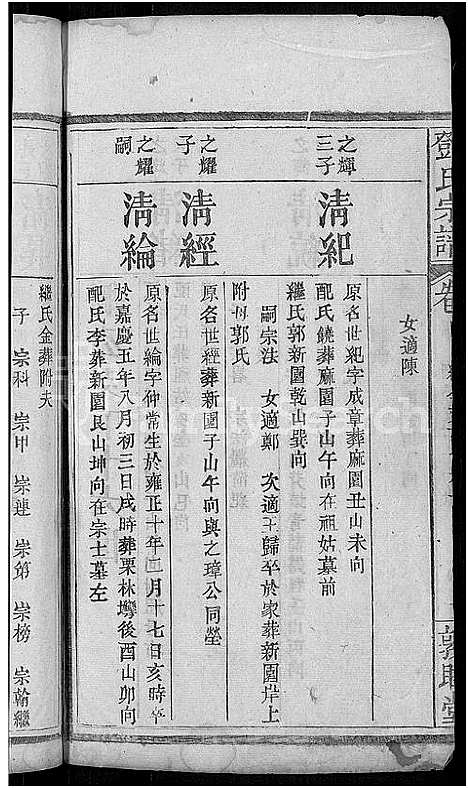 鄧氏宗譜
卷
敦睦堂
女適陳
之輝三子
清紀
原名世紀字成章葬麻園丑山未向
配氏饒葬麻園子山午向在祖姑墓前
繼氏郭新園乾山巽向
嗣宗法 女適鄭 次適王歸卒於家葬新園岸上
附母郭氏
之燿子
清經
原名世經葬新園子山午向與之璋公同塋
之燿嗣
清綸
原名世綸字仲常生於雍正十年二月十七日亥時卒
於嘉慶五年八月初三日戌時葬栗林塆後酉山卯向
配氏李葬新園艮山坤向在宗士墓左
繼氏金葬附夫
子 宗科 崇甲 崇連 崇第 崇榜 宗翰繼